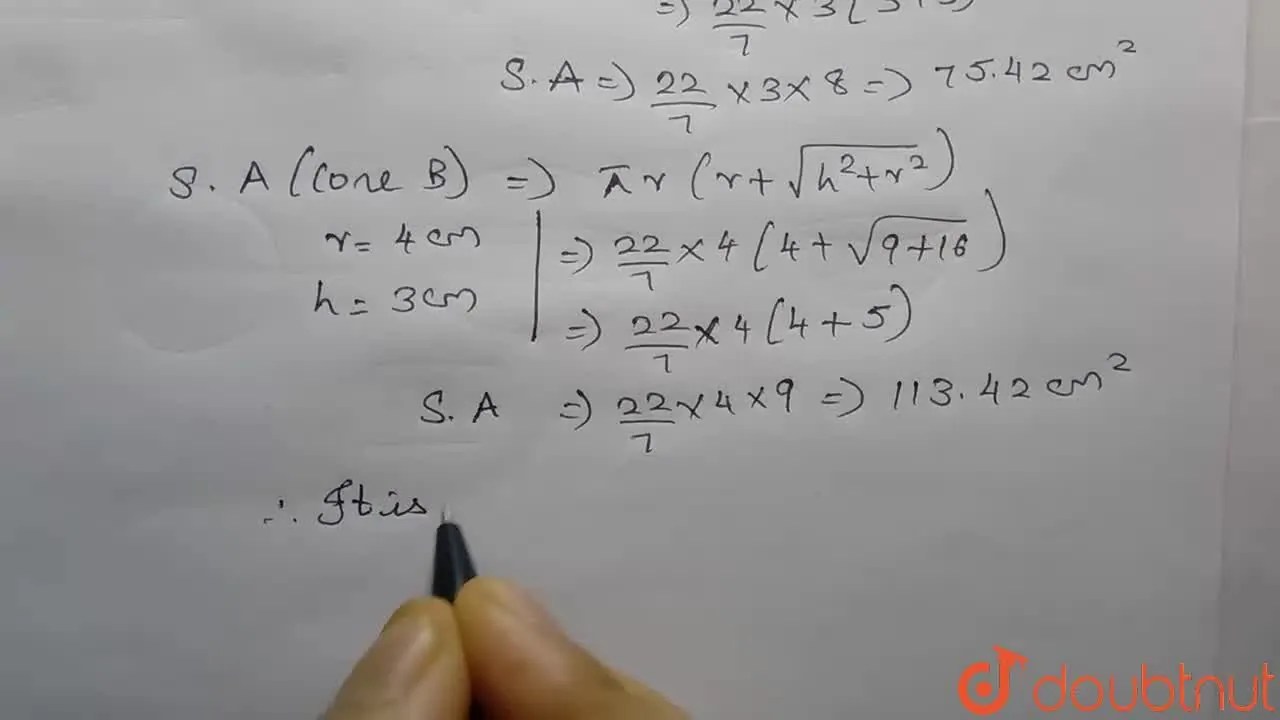 =) 22/7 × 3 (3+5)
S.A =) 22/7 × 3 × 8 =) 75.42 cm²
S.A (Cone B) =) πr (r + √(h²+r²))
r = 4 cm | =) 22/7 × 4 (4 + √(9+16))
h = 3 cm | =) 22/7 × 4 (4 + 5)
S.A =) 22/7 × 4 × 9 =) 113.42 cm²
∴ It is
doubtnut